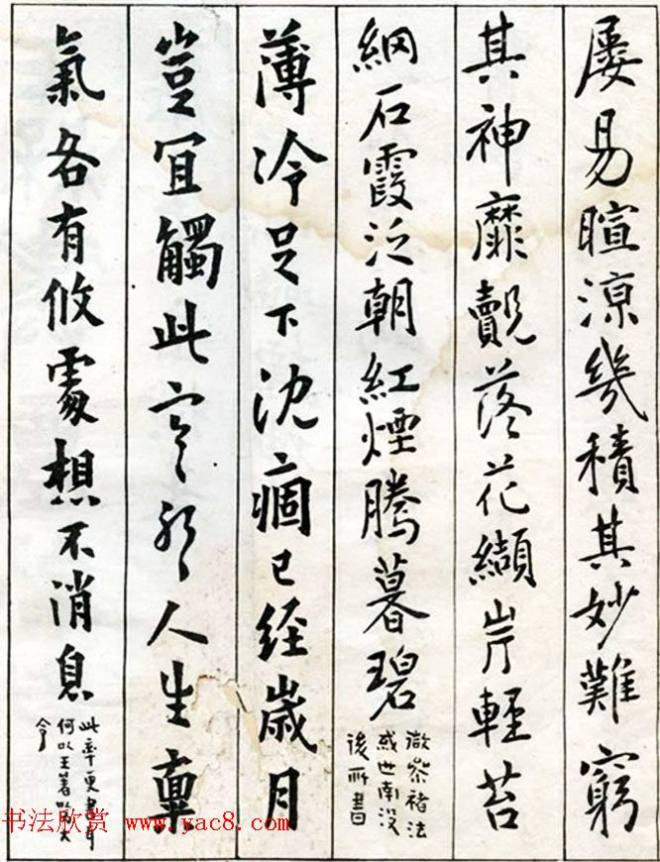 屢易暄涼幾積其妙難窮
其神靡覿落花纈岸輕苔
網石霞泛朝紅煙騰暮碧
微參褚法
或世南没
後所書
薄冷足下沈痼已经歲月
豈宜觸此寒耶人生禀
氣各有攸處想不消息
此率更書耳
何以王著大
令
书法欣赏 www.yac8.com